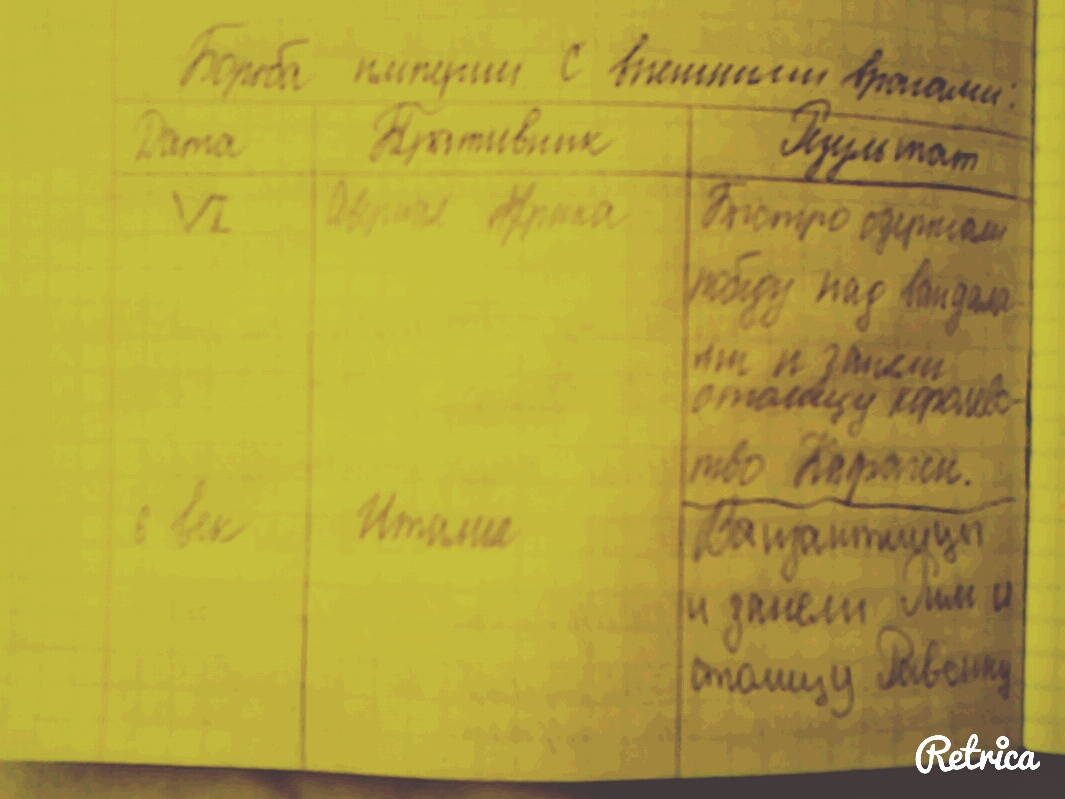 Борьба империи с внешними врагами:
Дата Противник Результат
VI Африка Быстро одержали
победу над вандала
ми и заняли
столицу королевс-
тво Карфаген.
6 век Италия Византийцы
и заняли Рим и
столицу Равенну
Retrica